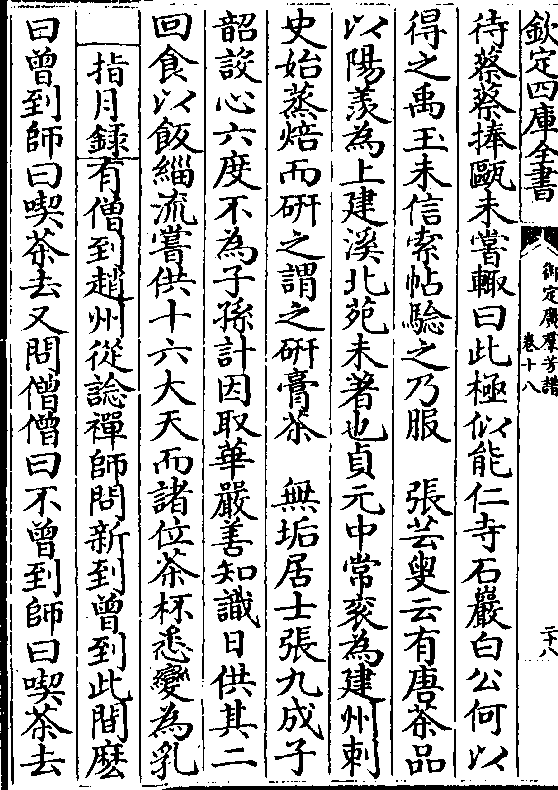 欽定四庫全書
御定廣羣芳譜
卷十八
二十八
待蔡蔡捧甌未嘗輙曰此極似能仁寺石巖白公何以
得之禹玉未信索帖驗之乃服　張芸叟云有唐茶品
以陽羨為上建溪北苑未著也貞元中常衮為建州刺
史始蒸焙而硏之謂之硏膏茶　無垢居士張九成子
韶設心六度不為子孫計因取華嚴善知識日供其二
回食以飯緇流嘗供十六大天而諸位茶杯悉變為乳
指月錄有僧到趙州從諗禪師問新到曾到此間麽
曰曾到師曰喫茶去又問僧僧曰不曾到師曰喫茶去